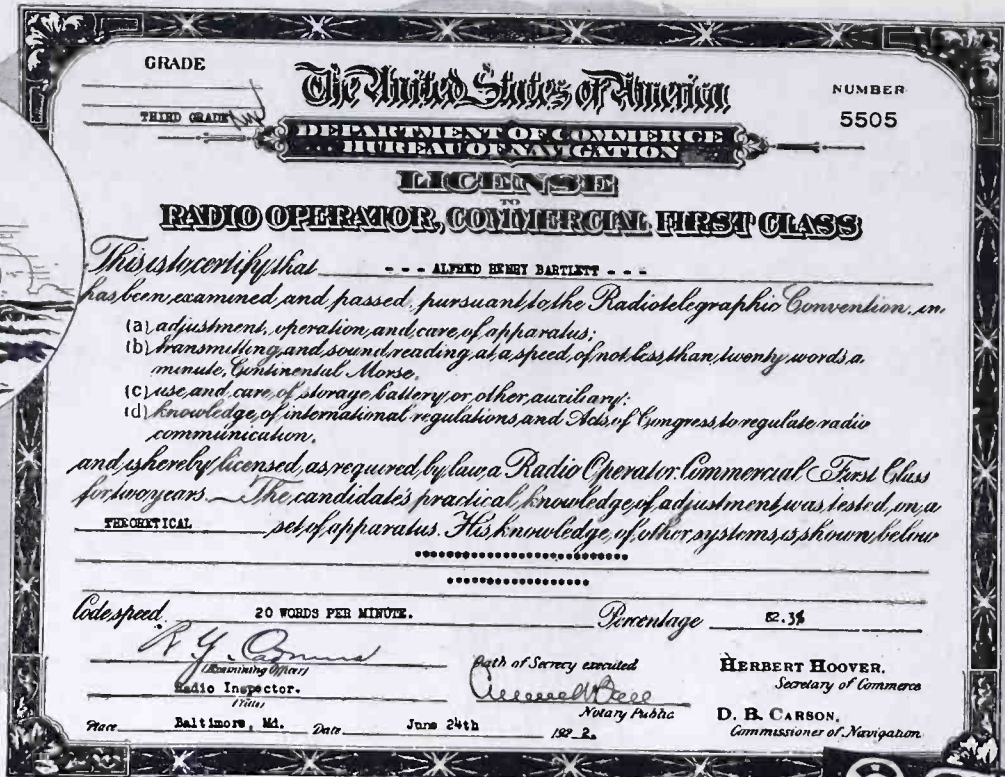 GRADE
THIRD GRADE
The United States of America
NUMBER
5505
DEPARTMENT OF COMMERCE
BUREAU OF NAVIGATION
LICENSE
TO
RADIO OPERATOR, COMMERCIAL FIRST CLASS
This is to certify that - - - ALFRED HENRY BARTLETT - - -
has been examined and passed, pursuant to the Radiotelegraphic Convention, in
(a) adjustment, operation and care of apparatus;
(b) transmitting and sound reading at a speed of not less than twenty words a
minute, Continental Morse,
(c) use and care of storage battery or other auxiliary;
(d) knowledge of international regulations and Acts of Congress to regulate radio
communication.
and is hereby licensed, as required by law, a Radio Operator. Commercial First Class
for two years. The candidate's practical knowledge of adjustment was tested, on a
THEORETICAL set of apparatus. His knowledge of other systems is shown below
Code speed 20 WORDS PER MINUTE. Percentage
(Examining Officer)
Radio Inspector.
(Title)
Oath of Secrecy executed
Notary Public
HERBERT HOOVER,
Secretary of Commerce
D. B. CARSON,
Commissioner of Navigation
Place Baltimore, Md. Date June 24th 192 2.